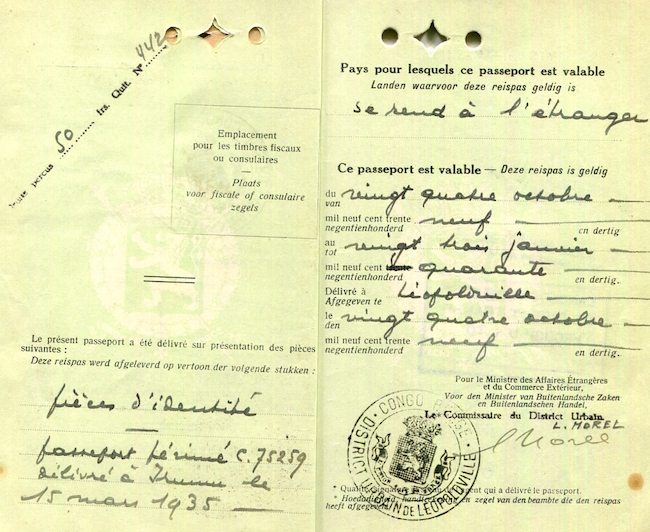 Taxe perçus 50 frs. Quit. Nº 442
Emplacement
pour les timbres fiscaux
ou consulaires
Plaats
voor fiscale of consulaire
zegels
Le présent passeport a été délivré sur présentation des pièces
suivantes :
Deze reispas werd afgeleverd op vertoon der volgende stukken :
pièces d'identité
passeport périmé C.75259
délivré à Irumu le
15 mars 1935
Pays pour lesquels ce passeport est valable
Landen waarvoor deze reispas geldig is
se rend à l'étranger
Ce passeport est valable — Deze reispas is geldig
du vingt quatre octobre
van
mil neuf cent trente neuf
negentienhonderd en dertig
au vingt trois janvier
tot
mil neuf cent trente quarante
negentienhonderd en dertig.
Délivré à Léopoldville
Afgegeven te
le vingt quatre octobre
den
mil neuf cent trente neuf
negentienhonderd en dertig.
Pour le Ministre des Affaires Étrangères
et du Commerce Extérieur,
Voor den Minister van Buitenlandsche Zaken
en Buitenlandschen Handel,
Le Commissaire du District Urbain
L. MOREL
LMorel
CONGO BELGE
DISTRICT URBAIN DE LÉOPOLDVILLE
* Qualité, signature et sceau de l'agent qui a délivré le passeport.
* Hoedanigheid, handteekening en zegel van den beambte die den reispas
heeft afgegeven.